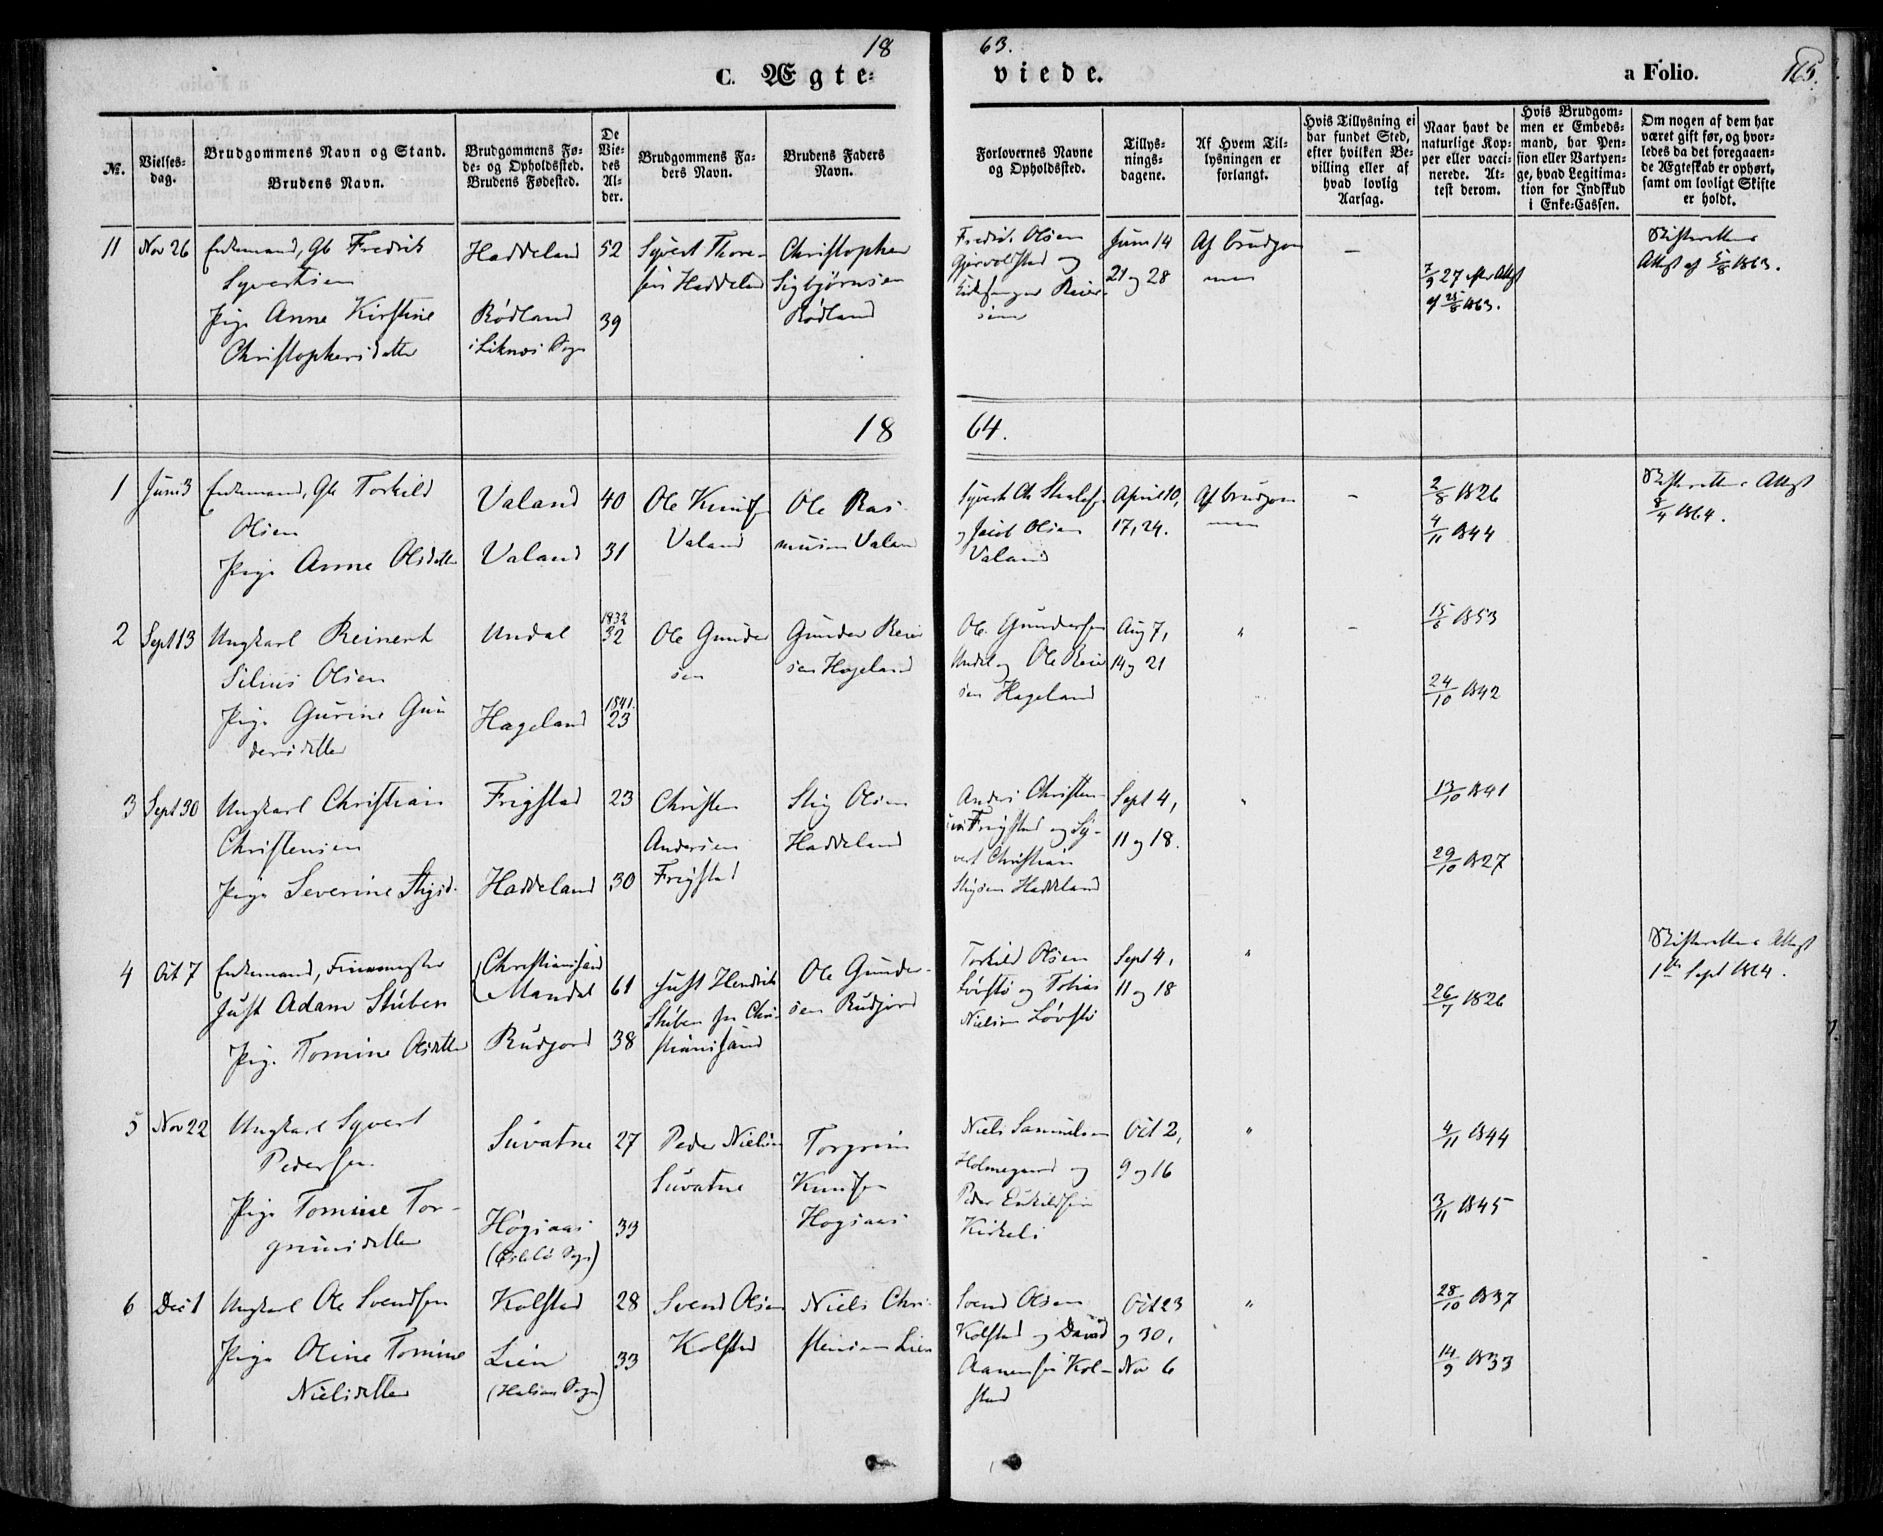 18 63.
C. Ægte- viede. a Folio. 165.
№.
Vielses-
dag.
Brudgommens Navn og Stand.
Brudens Navn.
Brudgommens Fø-
de- og Opholdssted.
Brudens Fødested.
De
Vie-
des
Al-
der.
Brudgommens Fa-
ders Navn.
Brudens Faders
Navn.
Forlovernes Navne
og Opholdssted.
Tillys-
nings-
dagene.
Af Hvem Til-
lysningen er
forlangt.
Hvis Tillysning ei
har fundet Sted,
efter hvilken Be-
villing eller af
hvad lovlig
Aarsag.
Naar havt de
naturlige Kop-
per eller vacci-
nerede. At-
test derom.
Hvis Brudgom-
men er Embeds-
mand, har Pen-
sion eller Vartpen-
ge, hvad Legitima-
tion for Indskud
i Enke-Cassen.
Om nogen af dem har
været gift før, og hvor-
ledes da det foregaaen-
de Ægteskab er ophørt,
samt om lovligt Skifte
er holdt.
11
Nov 26
Enkemand, Gb Fredrik
Syvertsen
Pige Anne Kirstine
Christophersdatter
Haddeland
Rødland
i Liknes Sogn
52
39
Syvert Thore-
sen Haddeland
Christopher
Sigbjørnsen
Rødland
Fredrik Olsen
Gjervoldstad og
Reier-
sen
Juni 14
21 og 28
Af Brudgom
men
–
7/9 27 efter Attest
af 25/6 1863.
Skifterettens
Attest af 5/8 1863.
18 64.
1
Juni 3
Enkemand, Gb Torkild
Olsen
Pige Anne Olsdatter
Valand
Valand
40
31
Ole Knuds
Valand
Ole Ras-
musen Valand
Syvert Ch
og Jacob Olsen
Valand
April 10,
17, 24.
Af Brudgom
men
–
2/8 1826
4/11 1844
Skifterettens Attest
8/4 1864.
2
Sept 13
Ungkarl Reinert
Silius Olsen
Pige Gurine Gun
dersdatter
Undal
Hageland
1832
32
1841.
23
Ole Gunder
sen
Gunder Reier
sen Hageland
Ole Gundersen
Undal og Ole Reier
sen Hageland
Aug 7,
14 og 21
"
–
15/6 1853
24/10 1842
3
Sept 30
Ungkarl Christian
Christensen
Pige Severine Stigsd.
Frigstad
Haddeland
23
30
Christen
Andersen
Frigstad
Stig Olsen
Haddeland
Anders Christen-
sen Frigstad og Sy-
vert Christian
Stigsen Haddeland
Sept 4,
11 og 18.
"
13/10 1841
29/10 1827
4
Oct 7
Enkemand,
Just Adam Stüben
Pige Tomine Olsdatter
Christianssand
Mandal
Rudjord
61
38
Just Hendrik
Stüben fra Chri-
stianssand
Ole Gunder-
sen Rudjord
Torkild Olsen
Løvstø og Tobias
Nielsen Løvstø
Sept 4,
11 og 18
"
26/7 1826
Skifterettens Attest
1ste Sept 1864.
5
Nov 22
Ungkarl Syvert
Pedersen
Pige Tomine Tor-
grimsdatter
Suvatne
Høgsaas
(Øslebø Sogn)
27
33
Peder Nielsen
Suvatne
Torgrim
Knudsen
Hogsaas
Niels Samuelsen
Holmegaard og
Peder Enkildsen
Kirkeli
Oct 2,
9 og 16
"
4/11 1844
3/11 1845
6
Dec 1
Ungkarl Ole Svendsen
Pige Oline Tomine
Nielsdatter
Kolstad
Lien
(Halsaa Sogn)
28
33
Svend Olsen
Kolstad
Niels Chri-
stensen Lien
Svend Olsen
Kolstad og David
Aanensen Kol-
stad
Oct 23
og 30,
Nov 6
"
28/10 1837
14/9 1833